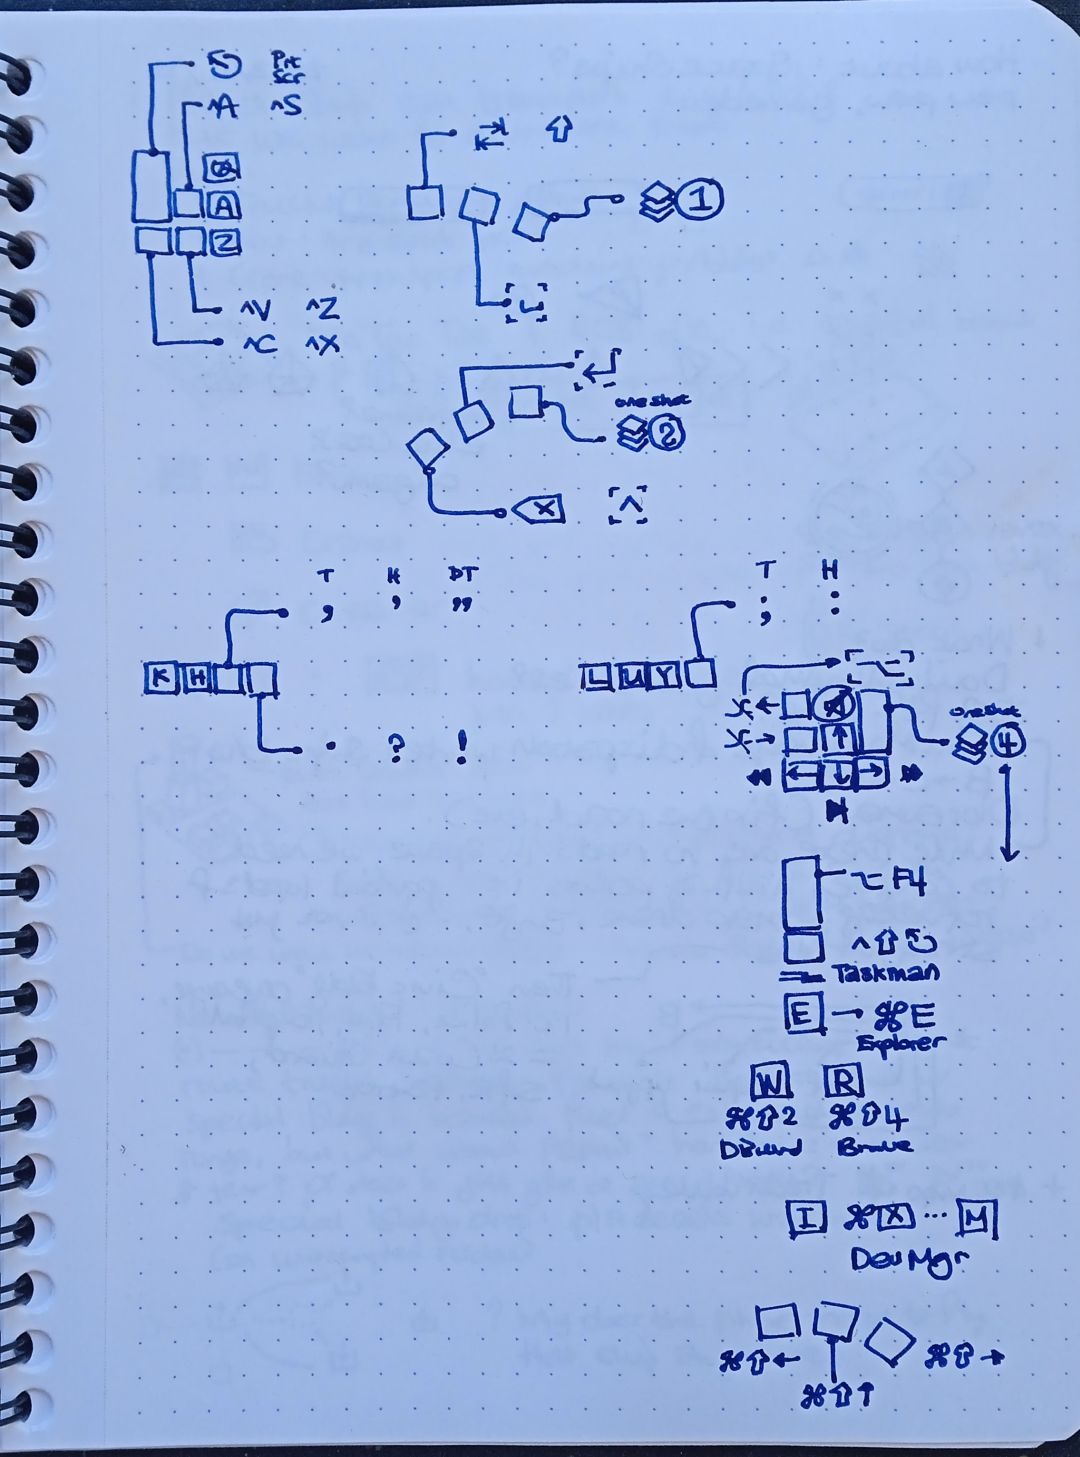 Prt
Scr
^A ^S
Q
A
Z
^V ^Z
^C ^X
1
one shot
2
X
^
T H DT
, ' "
K H
. ? !
T H
; :
L U Y
A
one shot
4
⌥ F4
^⇧
Taskman
E → ⌘E
Explorer
W R
⌘⇧2 ⌘⇧4
Discord Brave
I ⌘X ... M
Dev Mgr
⌘⇧← ⌘⇧→
⌘⇧↑